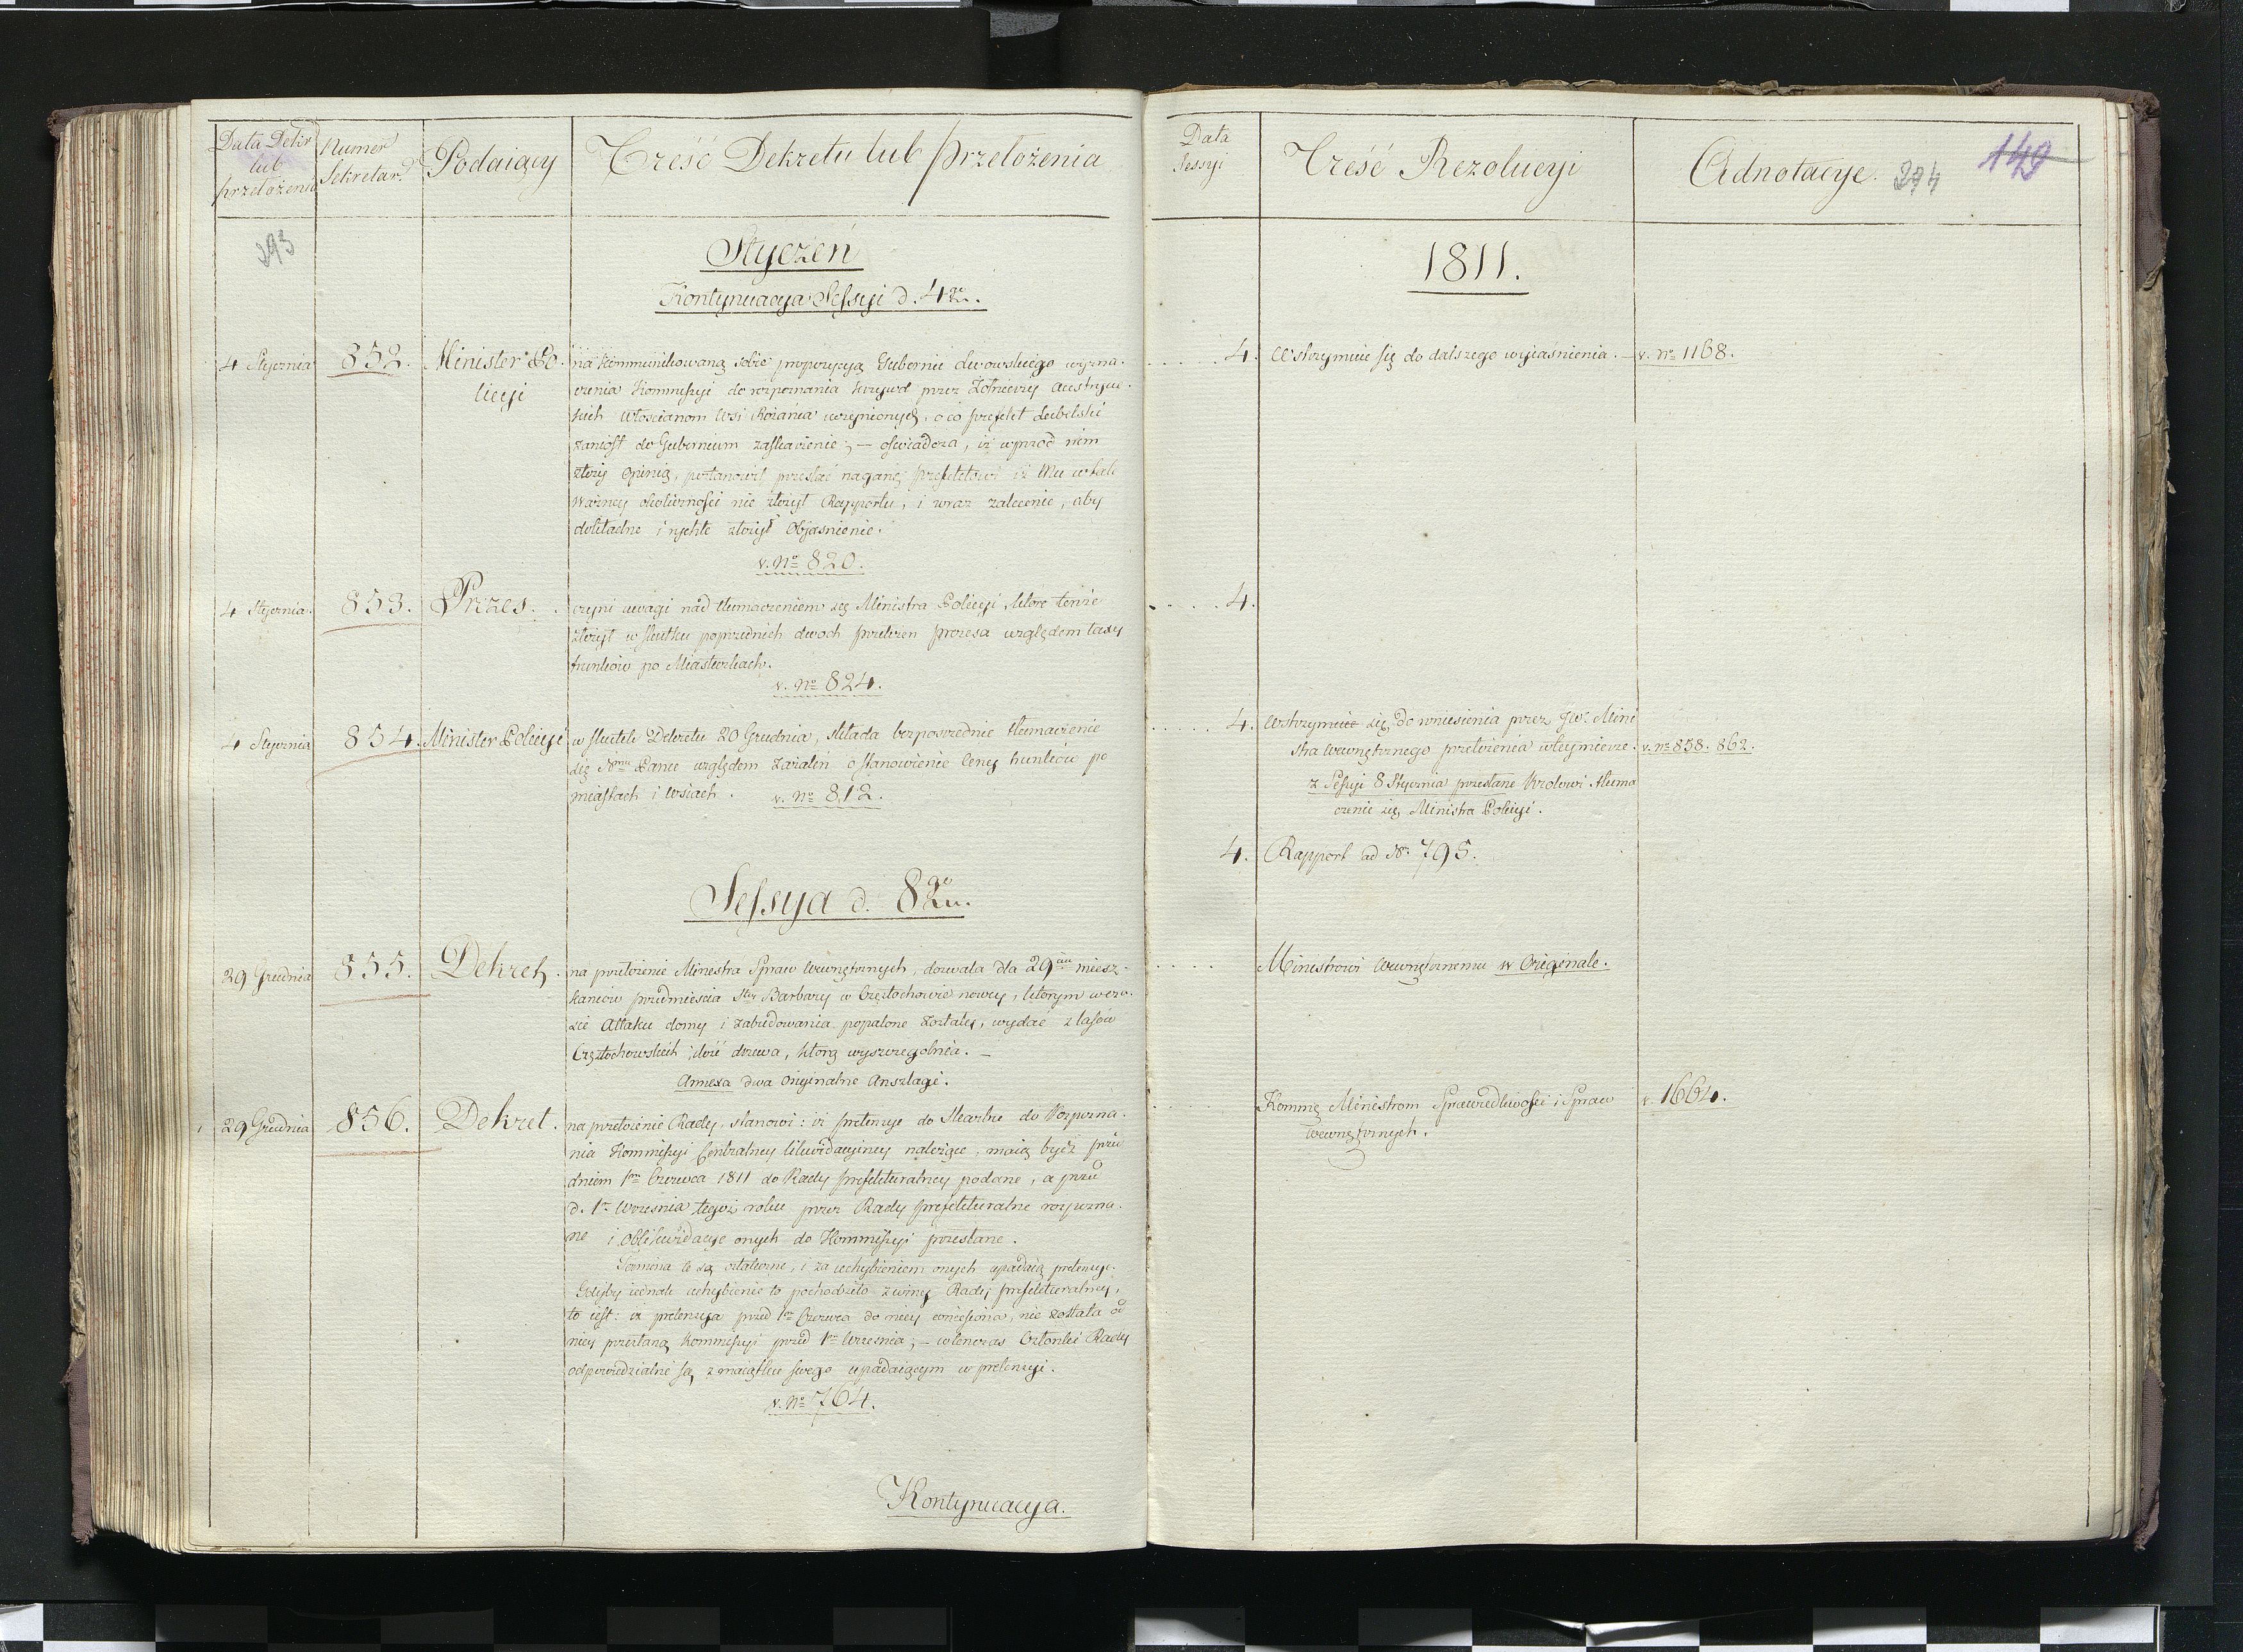 Data Dekr.
lub
przełożenia
Numer
Sekretar.
Podaiący
Treść Dekretu lub przełożenia
293
Styczeń
Kontynuacya Sessyi d. 4go
4 Stycznia
852.
Minister Po
licyi
na kommunikowaną sobie propozycyą Gubernii lwowskiego wyzna-
czenia Kommissyi do rozpoznania krzywd przez Żołnierzy Austryac-
kich Włościanom Wsi Rożańca uczynionych, o co prefekt Lubelski
zaniosł do Gubernium zaskarżenie; — oświadcza, iż wprzod nim
złoży Opinią, postanowił przesłać naganę prefektowi iż Mu w tak
ważney okoliczności nie złożył Rapportu, i wraz zalecenie, aby
dokładne i rychłe złożył Objaśnienie.
v. No 820.
4 Stycznia.
853.
Prezes.
czyni uwagi nad tłumaczeniem się Ministra Policyi, które tenże
złożył w skutku poprzednich dwoch przełożen prezesa względem taxy
trunków po Miasteczkach.
v. No 824.
4 Stycznia
854.
Minister Policyi
w skutek Dekretu 20 Grudnia, składa bezpośrednie tłumaczenie
się Nmu Panu względem Zażaleń o stanowienie ceny trunków po
miastach i wsiach.
v. No 812.
Sessya d. 8go
29 Grudnia
855.
Dekret.
na przełożenie Ministra Spraw Wewnętrznych, dozwala dla 29ciu miesz-
kańców przedmieścia Stey Barbary w Częstochowie nowey, którym w cza-
sie Attaku domy i zabudowania popalone zostały, wydać z lasów
Częstochowskich ilość drzewa, którą wyszczegolnia. —
Annexa dwa Oryginalne Anszlagi.
29 Grudnia
856.
Dekret.
na przełożenie Rady, stanowi: iż pretensye do Skarbu do Rozpozna-
nia Kommissyi Centralney likwidacyiney należące, maią bydź przed
dniem 1m Czerwca 1811 do Rady prefekturalney podane, a przed
d. 1m Września tegoż roku przez Rady prefekturalne rozpozna-
ne i Oblikwidacye onych do Kommissyi przesłane.
Termina te są ostateczne, i za uchybieniem onych upadaią pretensye.
Gdyby iednak uchybienie to pochodziło z winy Rady prefekturalney,
to iest: iż pretensya przed 1m Czerwca do niey wniesiona, nie została od
niey przesłaną Kommissyi przed 1m Września; — wtenczas Członki Rady
odpowiedzialne są z maiątku swego upadaiącym w pretensyi.
v. No 764.
Kontynuacya.
Data
Sessyi
Treść Rezolucyi
Adnotacye.
294
149
1811.
4. Wstrzymuie się do dalszego wyiaśnienia. —
v. No 1168.
4.
4. Wstrzymuie się do wniesienia przez JW. Mini
stra Wewnętrznego przełożenia w tey mierze.
v. No 858. 862.
z Sessyi 8 Stycznia przesłane Krolowi tłuma
czenie się Ministra Policyi.
4. Rapport ad No 795.
Ministrowi Wewnętrznemu w Oryginale.
Kommę Ministrom Sprawiedliwości i Spraw
wewnętrznych.
v. 1664.